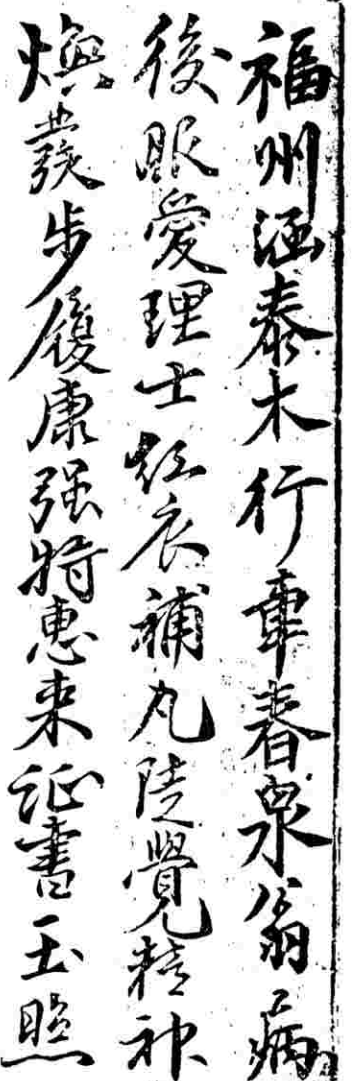 福州涵泰木行韋春泉翁病
後服愛理士紅衣補丸陡覺精神
煥發步履康强特惠来証書玉照